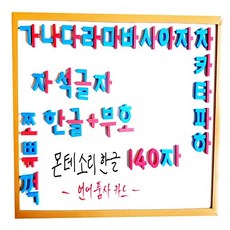 가나다라마바사아자차
카
타
파
하
자석글자
한글+부호
몬테소리한글 140자
- 언어품사 카드 -